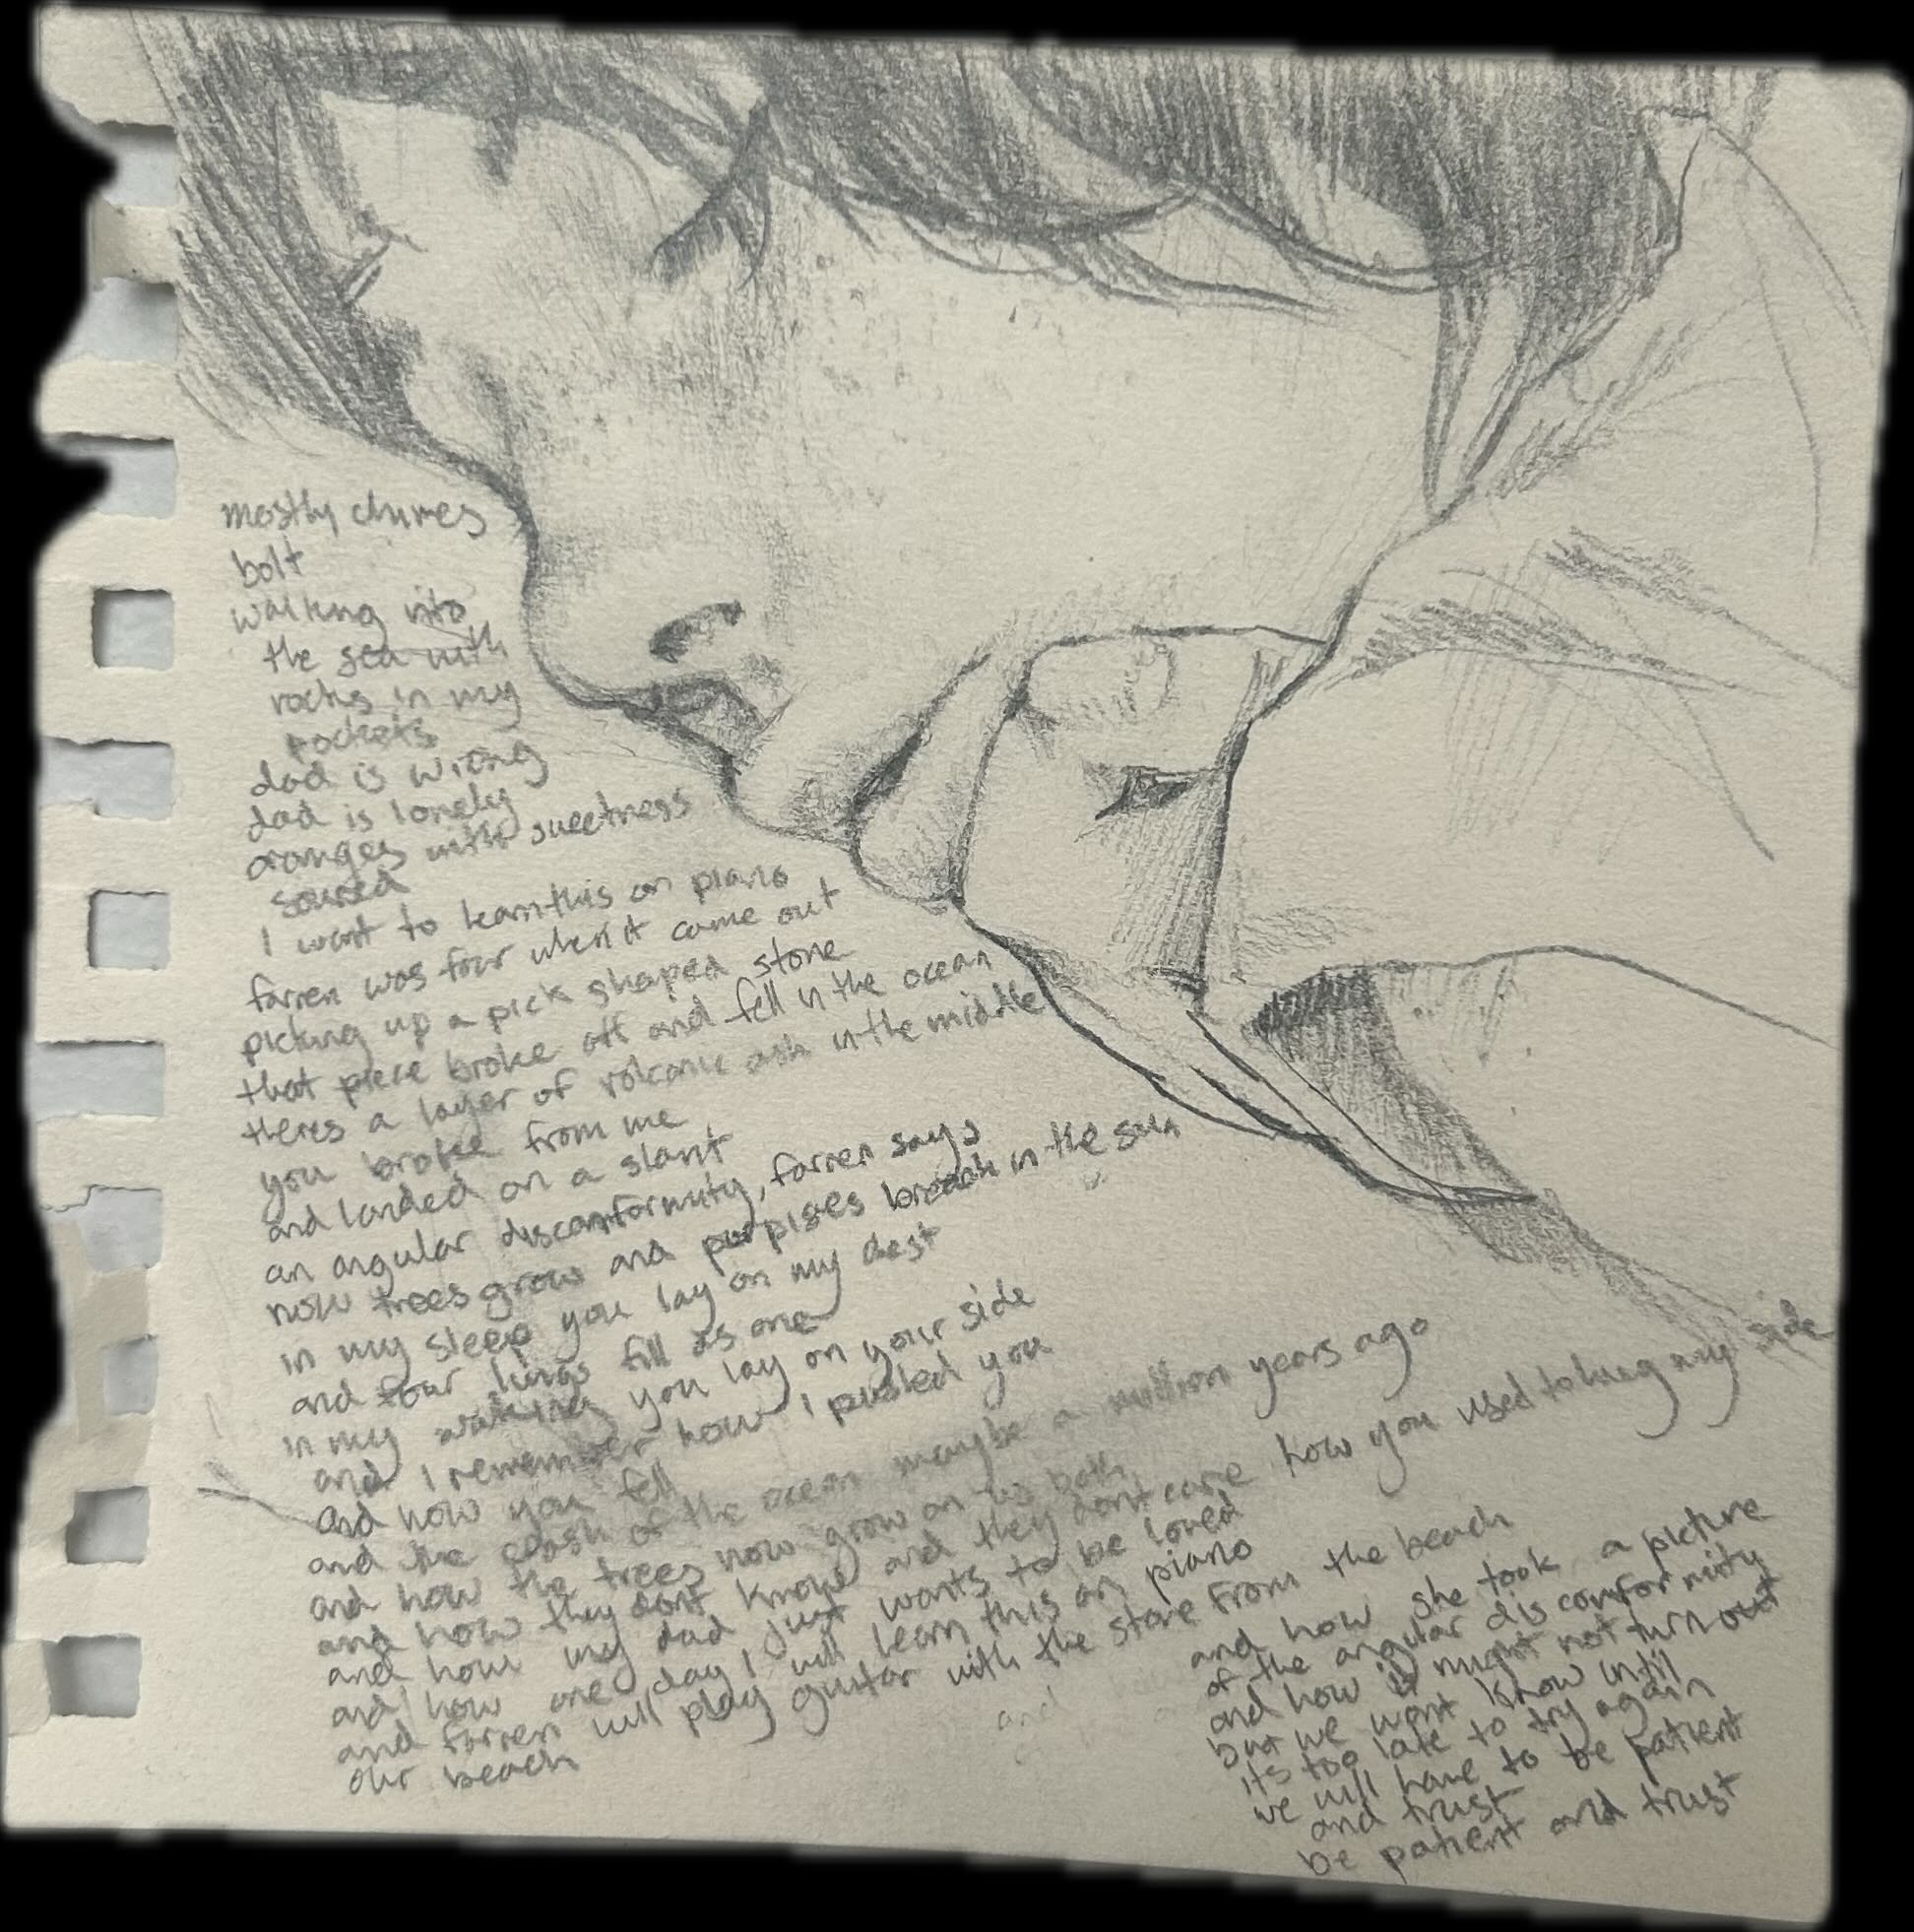 mostly chimes
bolt
walking into
the sea with
rocks in my
pockets
dad is wrong
dad is lonely
oranges with sweetness
soured
I want to learn this on piano
farren was four when it came out
picking up a pick shaped stone
that piece broke off and fell in the ocean
theres a layer of volcanic ash in the middle
you broke from me
and landed on a slant
an angular disconformity, farren says
now trees grow and porpises breach in the sun
in my sleep you lay on my chest
and four lungs fill as one
in my waking you lay on your side
and I remember how I pushed you
and how you fell
and the of the ocean maybe a million years ago
and how the trees now grow on us both
and how they dont know and they dont care how you used to hug my side
and how my dad just wants to be loved
and how one day I will learn this on piano
and farren will play guitar with the stone from the beach
our beach
and
and how she took a picture
of the angular discomformity
and how it might not turn out
but we wont know until
its too late to try again
we will have to be patient
and trust
be patient and trust